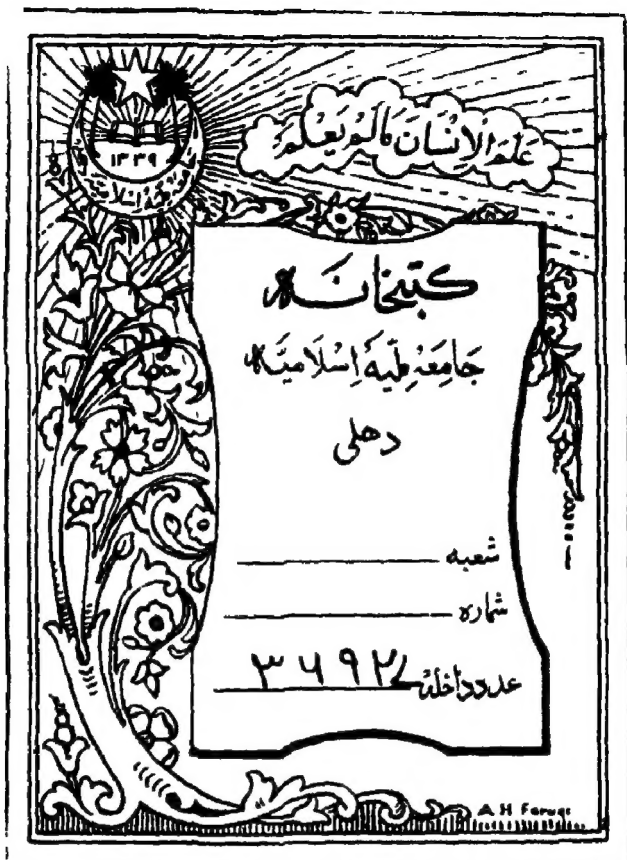 ۱۳۳۹
عَلَّمَ الْاِنْسَانَ مَالَمْ یَعْلَمْ
کتبخانہ
جَامِعَہ مِلّیَہ اِسْلَامِیَہ
دهلی
شعبہ
شمارہ
عدد داخلہ
A H Faruqi